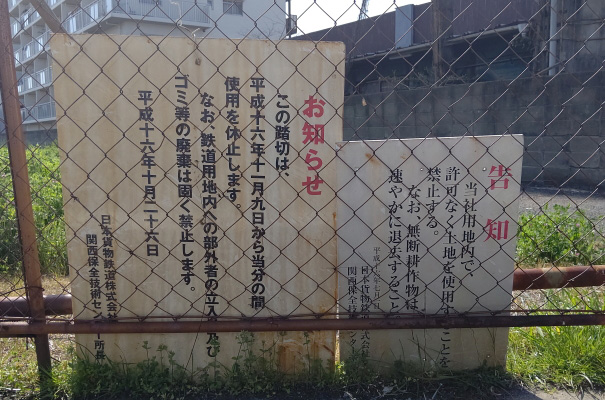 お知らせ
この踏切は、
平成十六年十一月九日から当分の間
使用を休止します。
なお、鉄道用地内への部外者の立入り及び
ゴミ等の廃棄は固く禁止します。
平成十六年十月二十六日
日本貨物鉄道株式会社
関西保全技術センター所長
告知
当社用地内で、
許可なく土地を使用することを
禁止する。
なお、無断耕作物は、
速やかに退去すること
日本貨物鉄道株式会社
関西保全技術センター